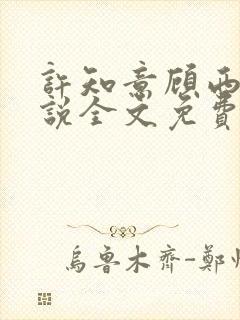 許知意顧両
說全文免費
烏魯木齊-鄭州